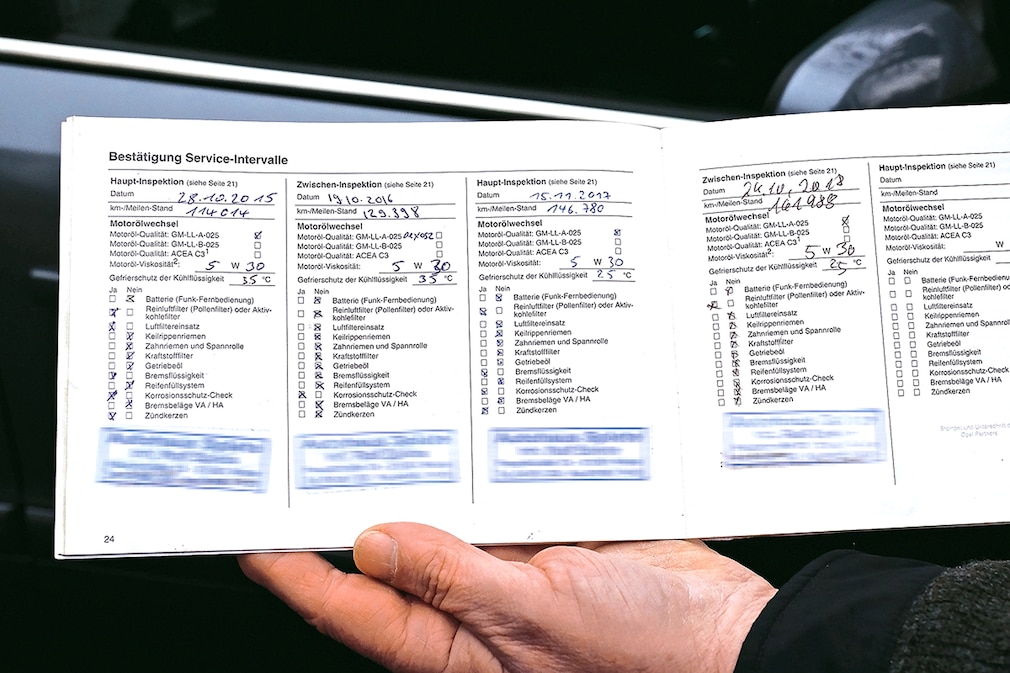 Bestätigung Service-Intervalle
Haupt-Inspektion (siehe Seite 21)
Datum 28.10.2015
km-/Meilen-Stand 114014
Motorölwechsel
Motoröl-Qualität: GM-LL-A-025
Motoröl-Qualität: GM-LL-B-025
Motoröl-Qualität: ACEA C3¹
Motoröl-Viskosität²: 5 W 30
Gefrierschutz der Kühlflüssigkeit 35 °C
Ja Nein
Batterie (Funk-Fernbedienung)
Reinluftfilter (Pollenfilter) oder Aktiv-
kohlefilter
Luftfiltereinsatz
Keilrippenriemen
Zahnriemen und Spannrolle
Kraftstofffilter
Getriebeöl
Bremsflüssigkeit
Reifenfüllsystem
Korrosionsschutz-Check
Bremsbeläge VA / HA
Zündkerzen
24
Zwischen-Inspektion (siehe Seite 21)
Datum 19/10.2016
km-/Meilen-Stand 129.398
Motorölwechsel
Motoröl-Qualität: GM-LL-A-025
Motoröl-Qualität: GM-LL-B-025
Motoröl-Qualität: ACEA C3
Motoröl-Viskosität: 5 W 30
Gefrierschutz der Kühlflüssigkeit 35 °C
Ja Nein
Batterie (Funk-Fernbedienung)
Reinluftfilter (Pollenfilter) oder Aktiv-
kohlefilter
Luftfiltereinsatz
Keilrippenriemen
Zahnriemen und Spannrolle
Kraftstofffilter
Getriebeöl
Bremsflüssigkeit
Reifenfüllsystem
Korrosionsschutz-Check
Bremsbeläge VA / HA
Zündkerzen
Haupt-Inspektion (siehe Seite 21)
Datum 15.11.2017
km-/Meilen-Stand 146.780
Motorölwechsel
Motoröl-Qualität: GM-LL-A-025
Motoröl-Qualität: GM-LL-B-025
Motoröl-Qualität: ACEA C3
Motoröl-Viskosität: 5 W 30
Gefrierschutz der Kühlflüssigkeit 25 °C
Ja Nein
Batterie (Funk-Fernbedienung)
Reinluftfilter (Pollenfilter) oder Aktiv-
kohlefilter
Luftfiltereinsatz
Keilrippenriemen
Zahnriemen und Spannrolle
Kraftstofffilter
Getriebeöl
Bremsflüssigkeit
Reifenfüllsystem
Korrosionsschutz-Check
Bremsbeläge VA / HA
Zündkerzen
Zwischen-Inspektion (siehe Seite 21)
Datum 24.10.2018
km-/Meilen-Stand 161988
Motorölwechsel
Motoröl-Qualität: GM-LL-A-025
Motoröl-Qualität: GM-LL-B-025
Motoröl-Qualität: ACEA C3¹
Motoröl-Viskosität²: 5 W 30
Gefrierschutz der Kühlflüssigkeit 25 °C
Ja Nein
Batterie (Funk-Fernbedienung)
Reinluftfilter (Pollenfilter) oder Aktiv-
kohlefilter
Luftfiltereinsatz
Keilrippenriemen
Zahnriemen und Spannrolle
Kraftstofffilter
Getriebeöl
Bremsflüssigkeit
Reifenfüllsystem
Korrosionsschutz-Check
Bremsbeläge VA / HA
Zündkerzen
Haupt-Inspektion (siehe Seite 21)
Datum
km-/Meilen-Stand
Motorölwechsel
Motoröl-Qualität: GM-LL-A-025
Motoröl-Qualität: GM-LL-B-025
Motoröl-Qualität: ACEA C3
Motoröl-Viskosität: W
Gefrierschutz der Kühlflüssigkeit
Ja Nein
Batterie (Funk-Fernbedienung)
Reinluftfilter (Pollenfilter) oder Aktiv-
kohlefilter
Luftfiltereinsatz
Keilrippenriemen
Zahnriemen und Spannrolle
Kraftstofffilter
Getriebeöl
Bremsflüssigkeit
Reifenfüllsystem
Korrosionsschutz-Check
Bremsbeläge VA / HA
Zündkerzen
Opel Partners